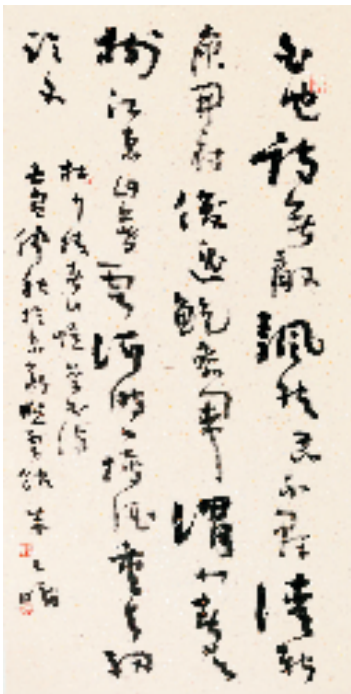 白也詩無敵飄然思不群清新
庾開府俊逸鮑參軍渭北春天
樹江東日暮雲何時一樽酒重與細
論文
杜少陵春日憶李白詩
壬寅仲秋於京郊